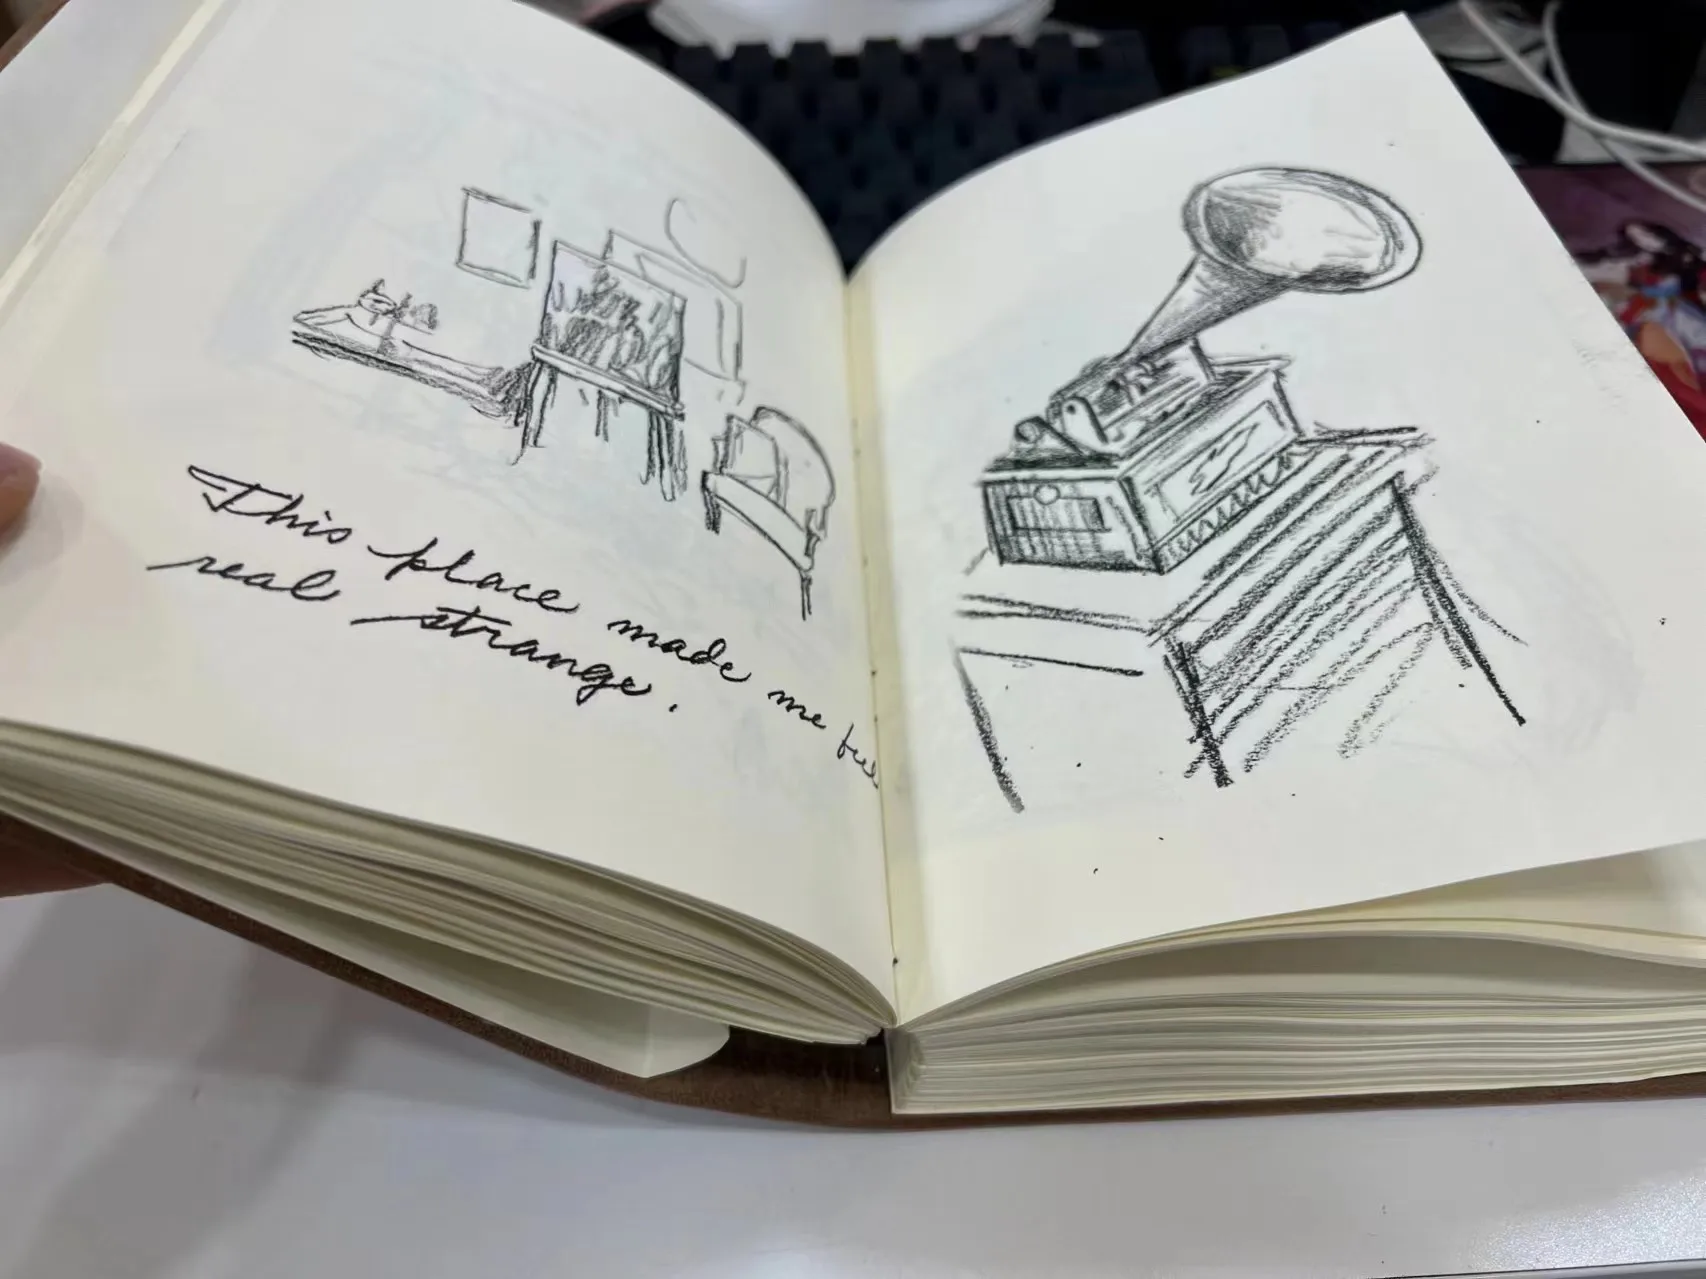 This place made me feel
real strange.